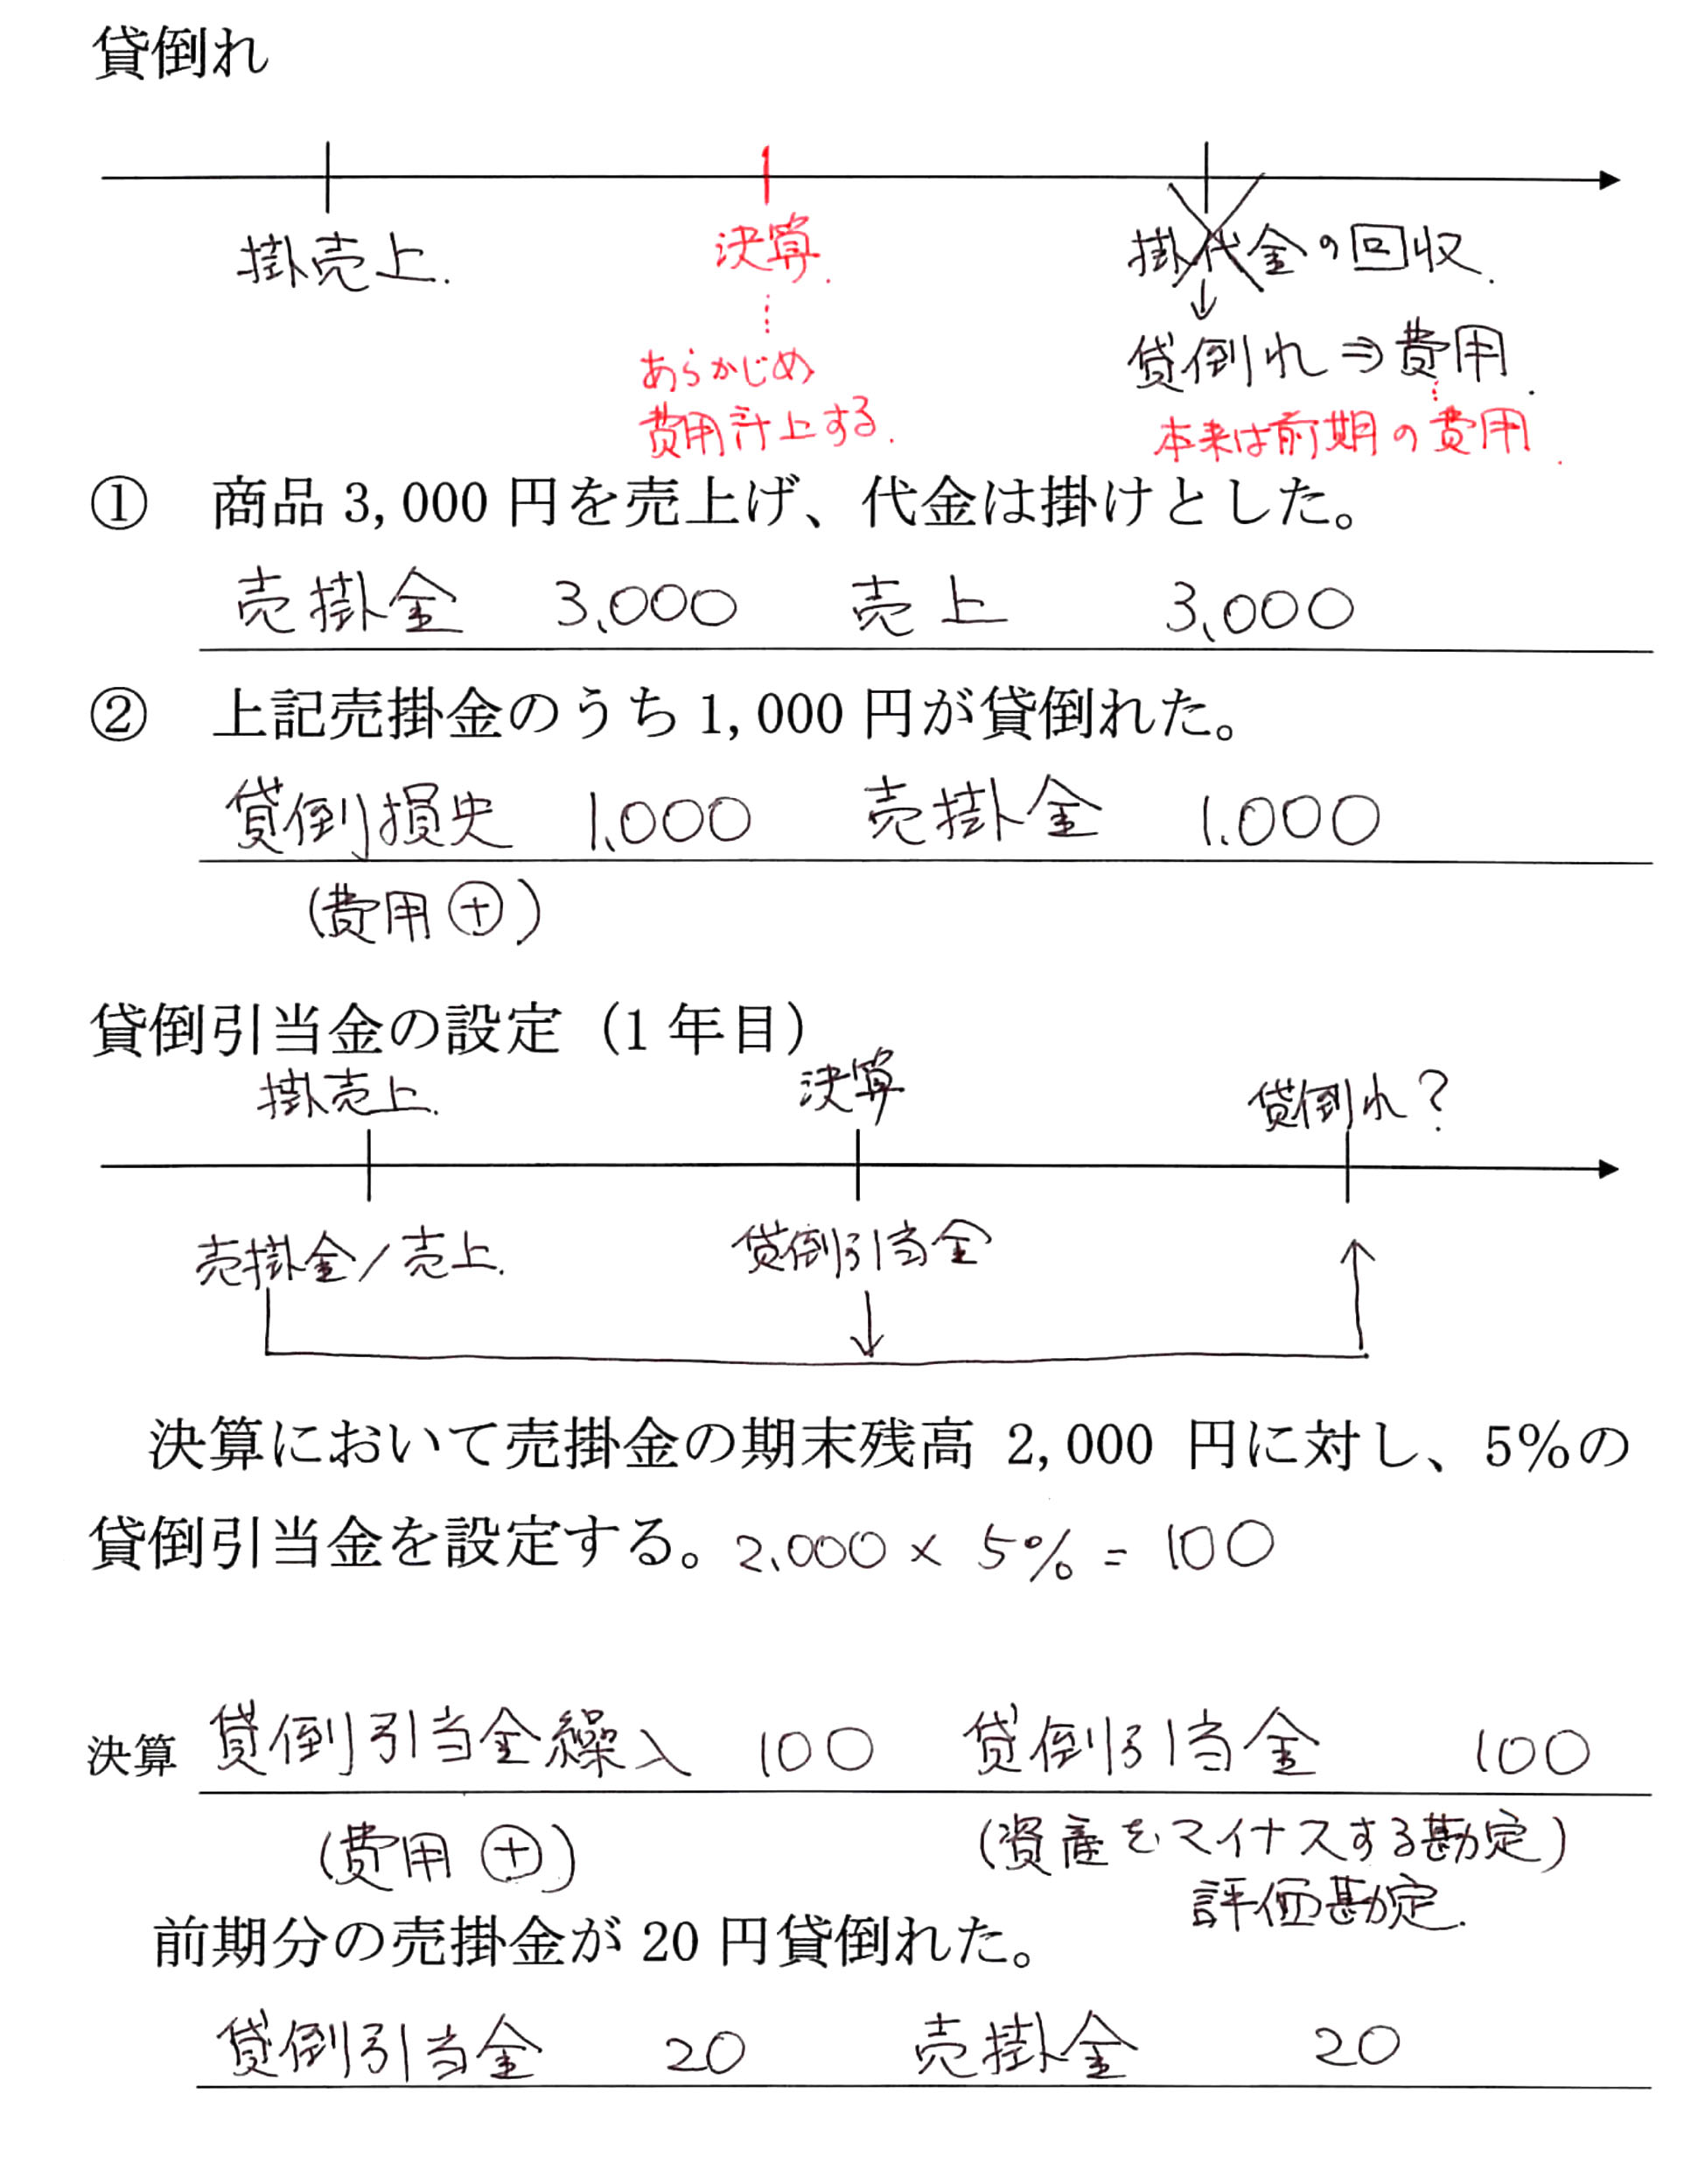 貸倒れ
掛売上. 決算. 掛代金の回収.
↓
あらかじめ 貸倒れ⇒費用.
費用計上する. 本来は前期の費用.
① 商品3,000円を売上げ、代金は掛けとした。
売掛金 3,000 売上 3,000
② 上記売掛金のうち1,000円が貸倒れた。
貸倒損失 1,000 売掛金 1,000
(費用⊕)
貸倒引当金の設定（1年目）
掛売上. 決算 貸倒れ?
売掛金/売上. 貸倒引当金
決算において売掛金の期末残高 2,000 円に対し、5%の
貸倒引当金を設定する。2,000 × 5% = 100
決算 貸倒引当金繰入 100 貸倒引当金 100
(費用⊕) (資産をマイナスする勘定)
評価勘定.
前期分の売掛金が20円貸倒れた。
貸倒引当金 20 売掛金 20